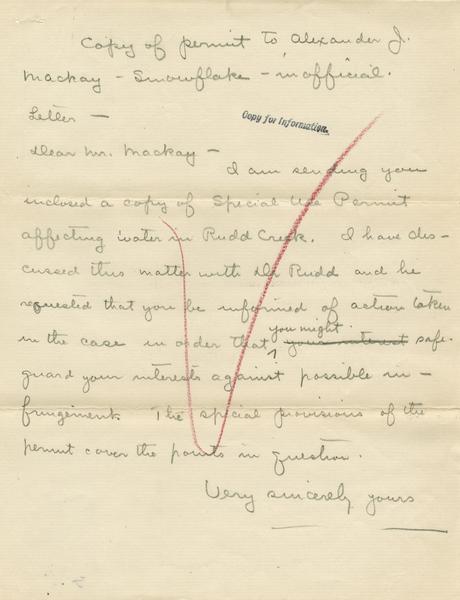 Copy of permit to Alexander J.
Mackay - Snowflake - in official.
Letter -
Copy for Information.
Dear Mr. Mackay -
I am sending you
inclosed a copy of Special Use Permit
affecting water in Rudd Creek. I have dis-
cussed this matter with Dr Rudd and he
requested that you be informed of action taken
in the case in order that you might your interest safe-
guard your interests against possible in-
fringement. The special provisions of the
permit cover the points in question.
Very sincerely yours